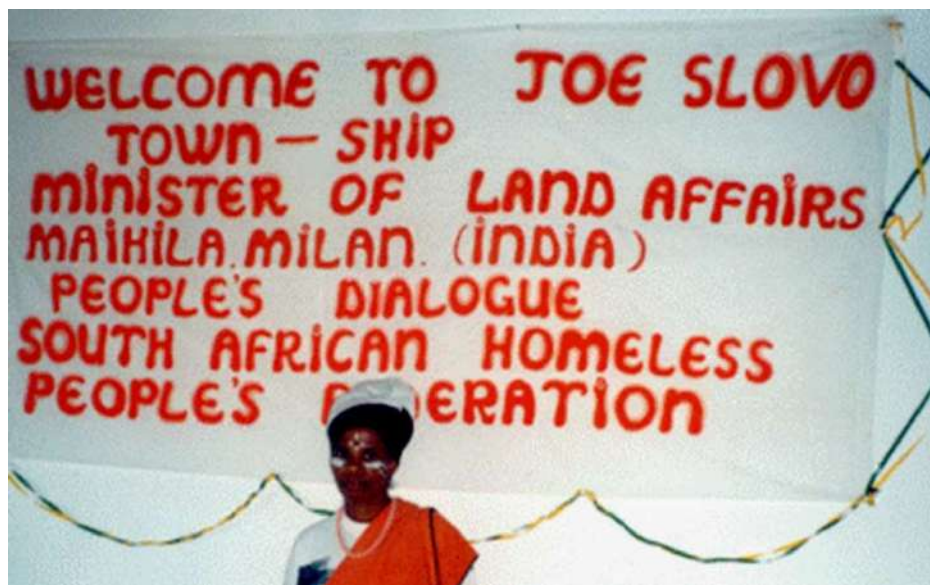 WELCOME TO JOE SLOVO
TOWN - SHiP
MiNiSTER OF LAND AFFAiRS
MAiHiLA. MiLAN. (iNDiA)
PEOPLE'S DIALOGUE
SOUTH AFRiCAN HOMELESS
PEOPLE'S